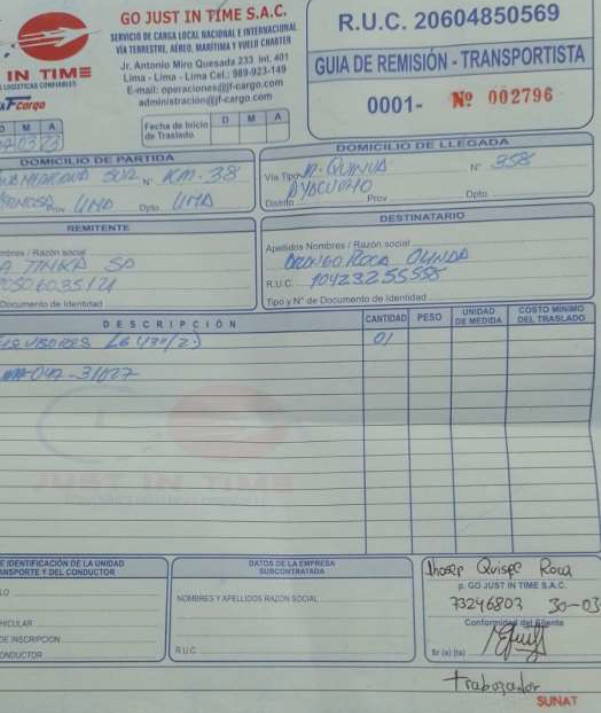 GO JUST IN TIME S.A.C.
SERVICIO DE CARGA LOCAL NACIONAL E INTERNACIONAL
VÍA TERRESTRE, AÉREO, MARÍTIMA Y VUELO CHARTER
Jr. Antonio Miro Quesada 233 Int. 401
Lima - Lima - Lima Cel.: 989-923-149
E-mail: operaciones@jf-cargo.com
administración@jf-cargo.com
IN TIME
LOGISTICAS CONFIABLES
Cargo
R.U.C. 20604850569
GUIA DE REMISIÓN - TRANSPORTISTA
0001- Nº 002796
D M A
Fecha de Inicio de Traslado D M A
DOMICILIO DE PARTIDA
SUR Nº KM-38
Prov. LIMA Dpto. LIMA
DOMICILIO DE LLEGADA
Vía Tipo Jr. QUINUA Nº 358
Distrito AYACUCHO Prov. Dpto.
REMITENTE
Nombres / Razón social
LA TINKA SA
20506035121
Documento de Identidad
DESTINATARIO
Apellidos Nombres / Razón social
ROCA OLINDA
R.U.C. 10423255585
Tipo y N° de Documento de Identidad
DESCRIPCIÓN CANTIDAD PESO UNIDAD DE MEDIDA COSTO MÍNIMO DEL TRASLADO
LG 01
042-31027
JUST IN TIME
DE IDENTIFICACIÓN DE LA UNIDAD
TRANSPORTE Y DEL CONDUCTOR
DE INSCRIPCION
CONDUCTOR
DATOS DE LA EMPRESA SUBCONTRATADA
NOMBRES Y APELLIDOS RAZÓN SOCIAL
R.U.C.
Jhosep Quispe Roca
p. GO JUST IN TIME S.A.C.
73246803 30-03
Conformidad del Cliente
Sr (a) (ta)
trabajador
SUNAT